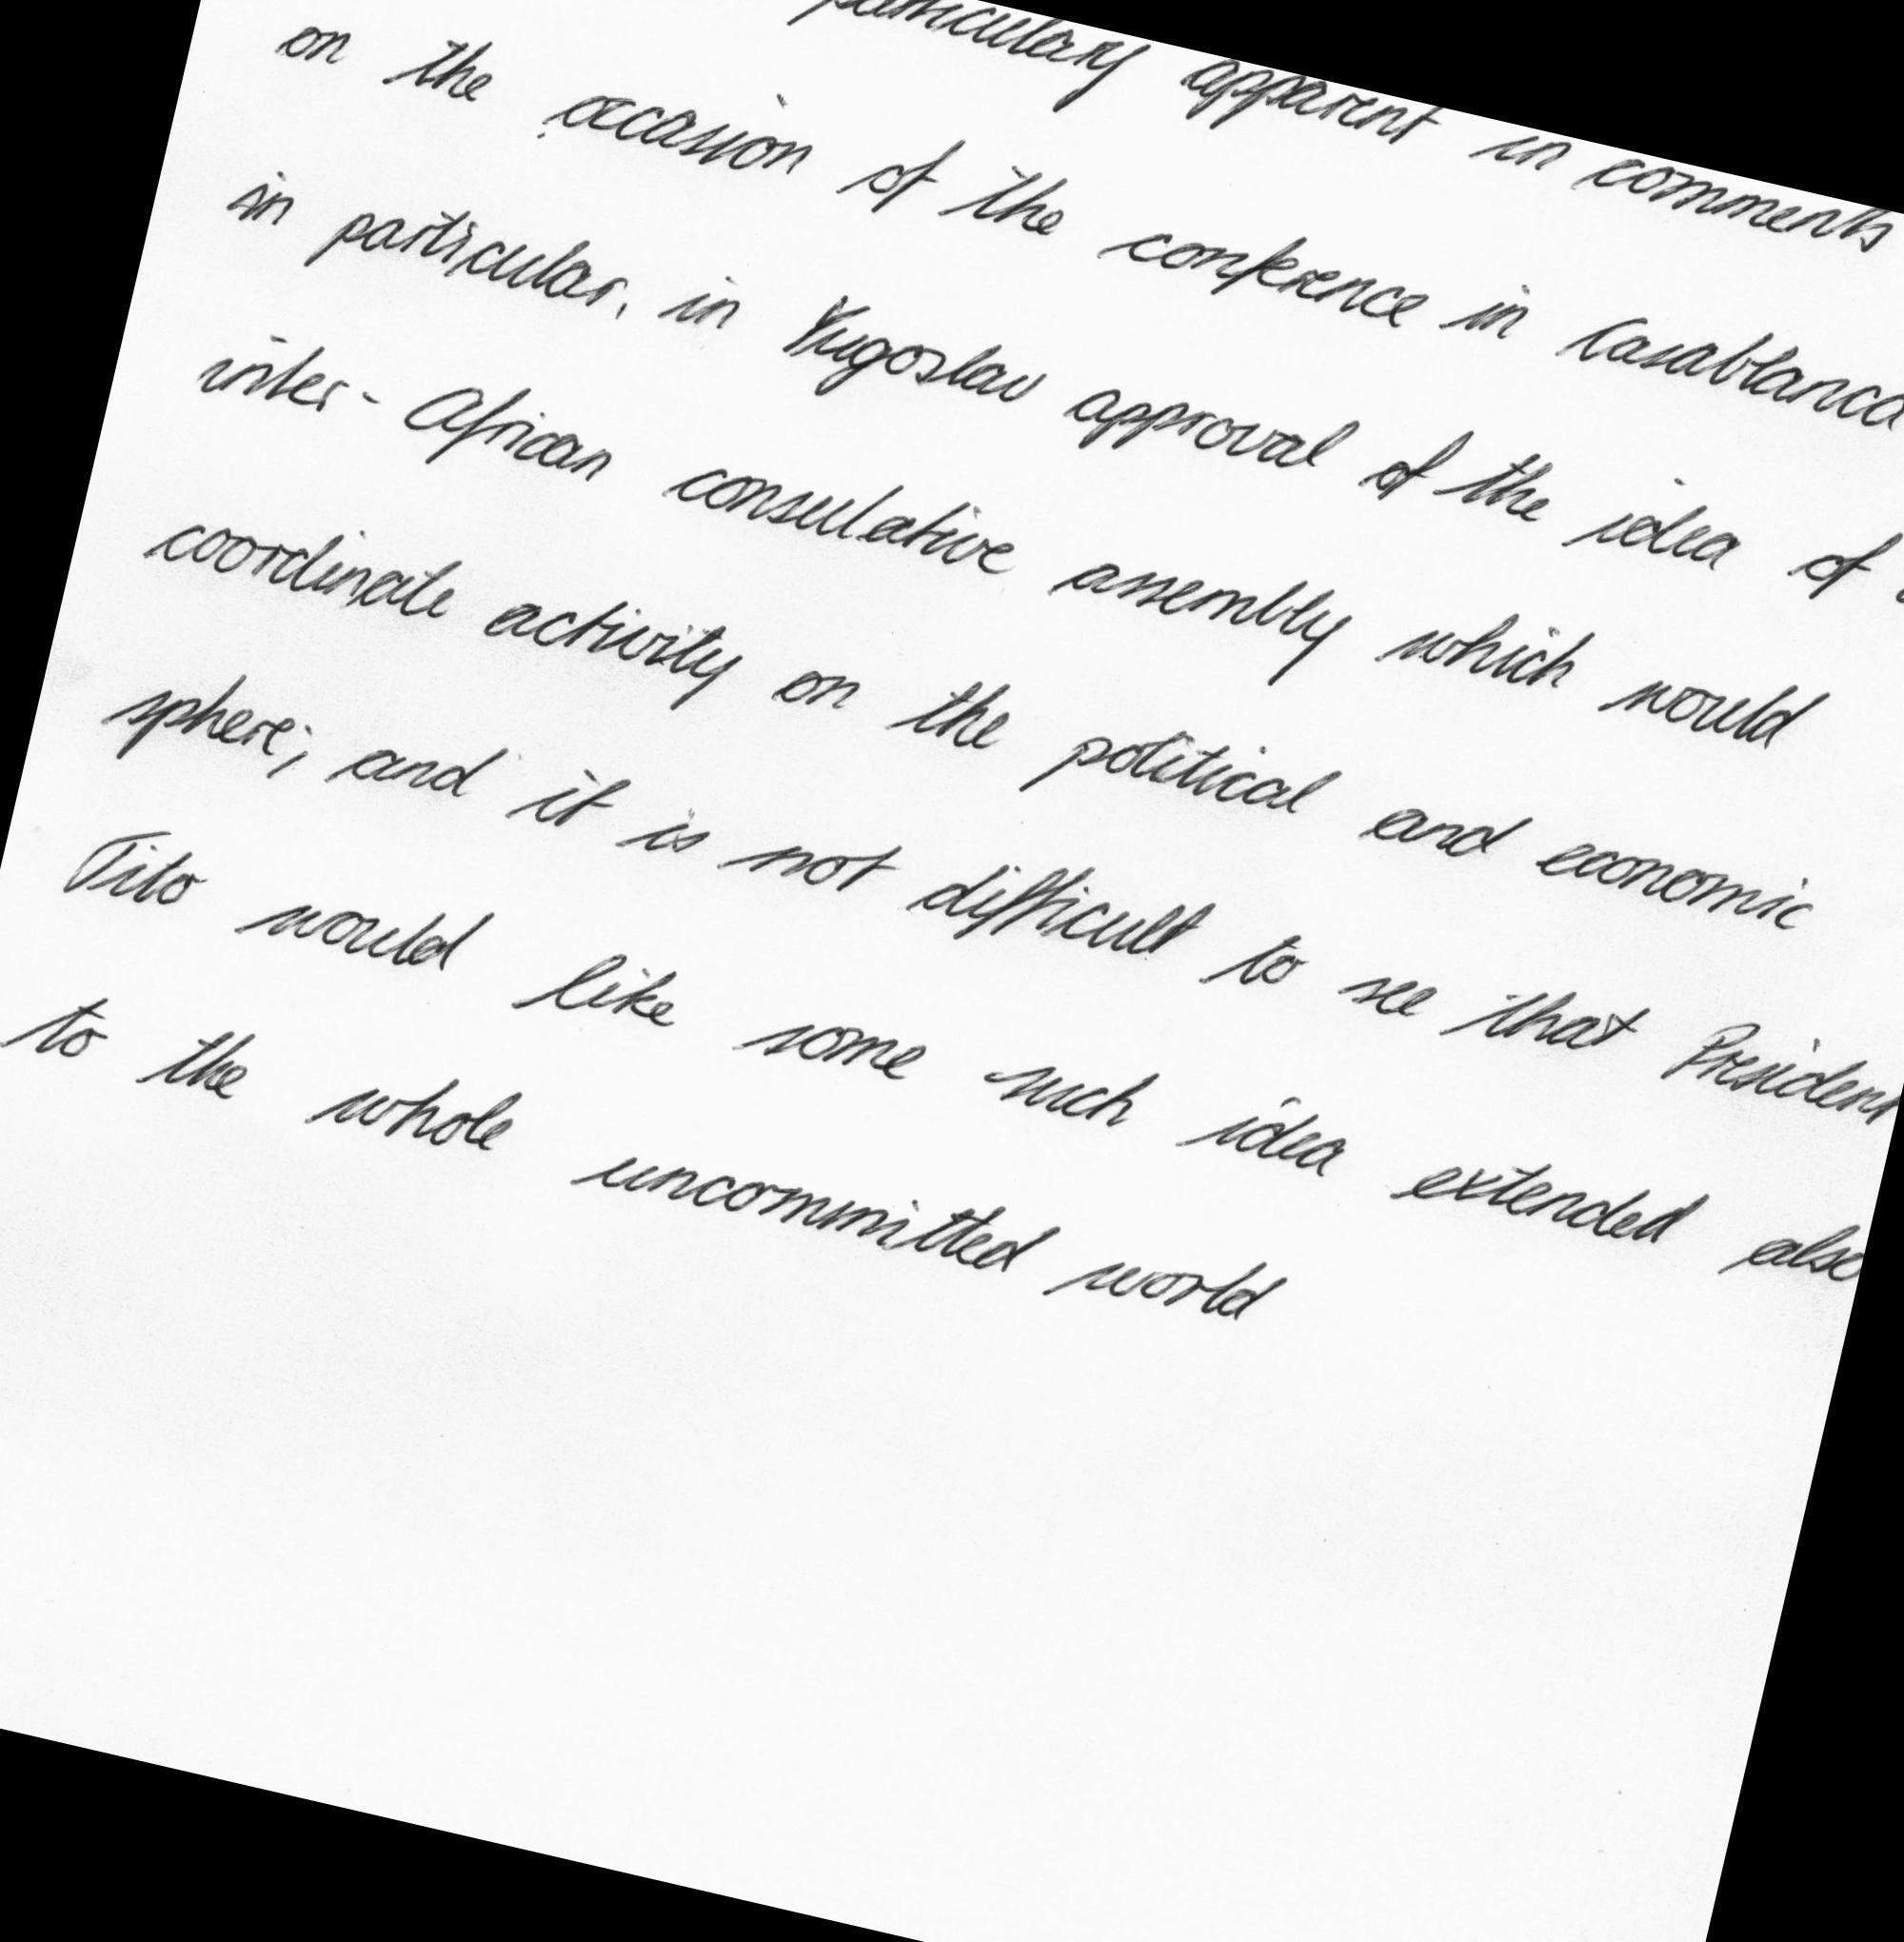 particulary apparent in comments
on the occasion of the conference in Casablanca
in particular, in Yugoslav approval of the idea of
inter-African consulative assembly which would
coordinate activity on the political and economic
sphere; and it is not difficult to see that President
Tito would like some such idea extended also
to the whole uncommitted world